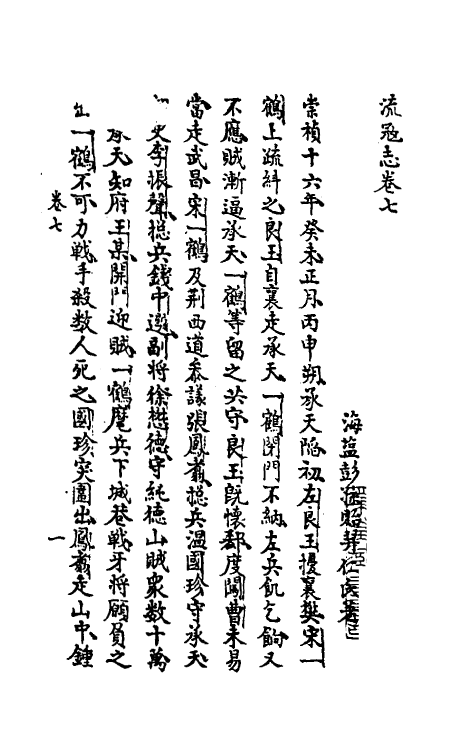 流寇志卷七
海盐彭孫貽羿仁氏著
崇禎十六年癸未正月丙申朔承天陷初左良玉擾襄樊宋一
鶴上疏紏之良玉自襄走承天一鶴閉門不納左兵飢乞餉又
不應賊漸逼承天一鶴等留之共守良玉既懷郄度闖曹未易
當走武昌宋一鶴及荆西道叅議張鳳翥揔兵温國珍守承天
史李振聲揔兵錢中選副将徐懋德守純德山賊衆数十萬
承天知府王某開門迎賊一鶴麾兵下城巷戰牙将願負之
一鶴不可力戰手殺数人死之國珍突圍出鳳翥走山中鍾
卷七
一